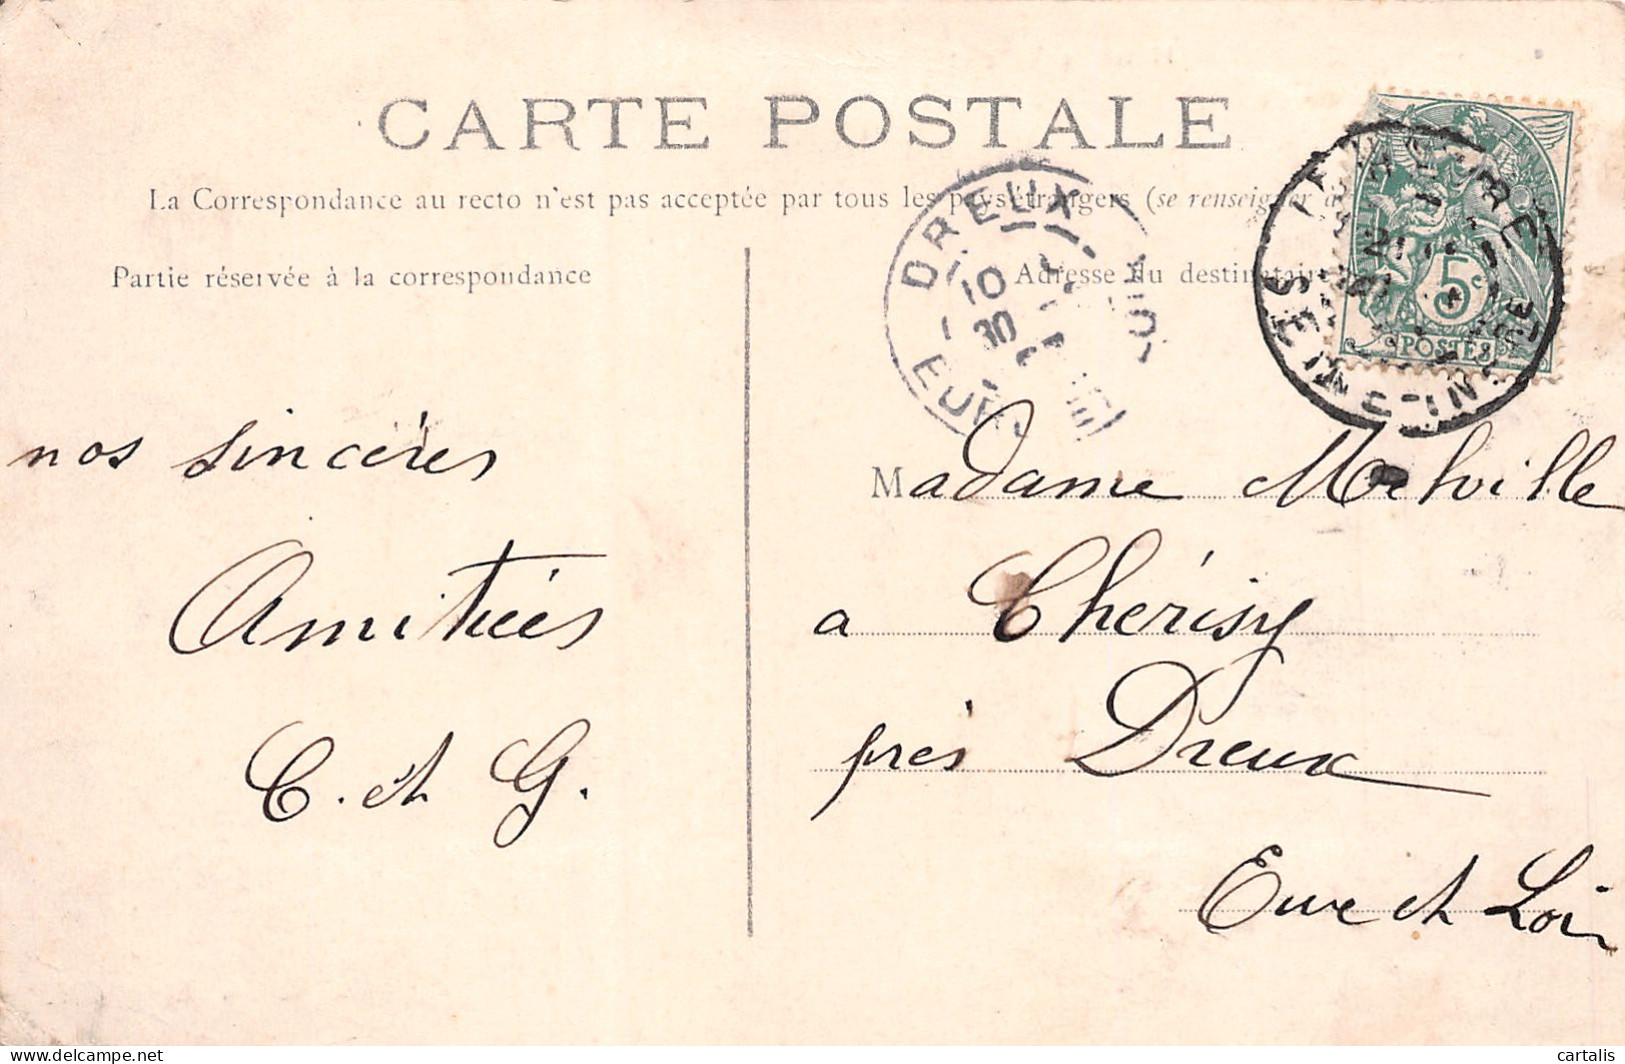 CARTE POSTALE
La Correspondance au recto n'est pas acceptée par tous les pays étrangers (se renseigner à
Partie réservée à la correspondance
Adresse du destinataire
DREUX
10
30
EURE
5c
POSTES
nos sincères
Amitiés
C. et G.
Madame Melville
a Chérisy
près Dreux
Eure et Loir
delcampe.net
cartalis